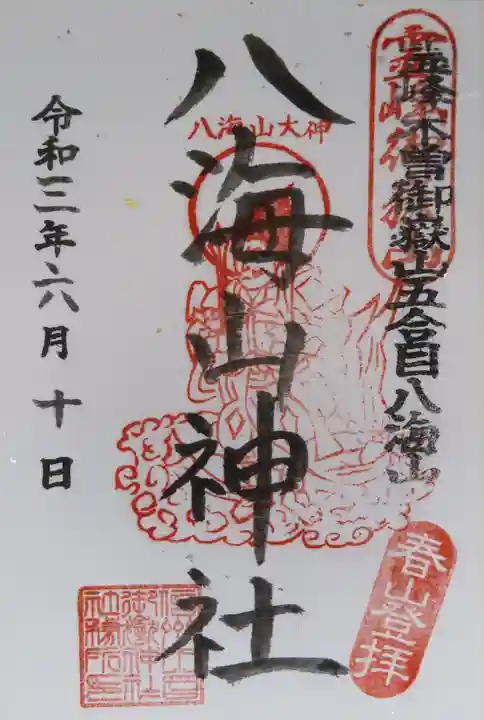 霊峰木曽御嶽山五合目八海山
春山登拝
八海山大神
八海山神社
令和三年六月十日